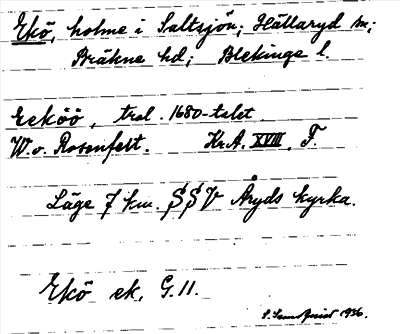 Ekö, holme i Saltsjön; Hällaryd sn;
Bräkne hd; Blekinge l.
Eeköö, trol. 1680-talet
W. v. Rosenfelt. Kr.A. XVIII, F.
Läge 7 km. SSV Åryds kyrka.
Ekö ek. G.11.
1936.